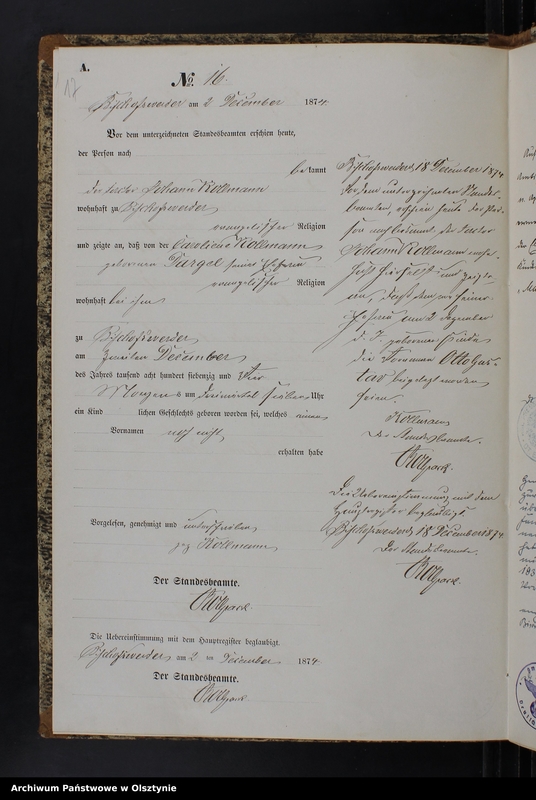 A.
17
No. 16.
Bischofswerder am 2 December 1874.
Vor dem unterzeichneten Standesbeamten erschien heute,
der Person nach
bekannt
der Johann Kollmann
wohnhaft zu Bischofswerder
evangelischer Religion
und zeigte an, daß von der Caroline Kollmann
geborenen Pargel seiner Ehefrau
evangelischer Religion
wohnhaft bei ihm
zu Bischofswerder
am zweiten December
des Jahres tausend acht hundert siebenzig und vier
Morgens um dreiviertel sieben Uhr
ein Kind lichen Geschlechts geboren worden sei, welches einen
Vornamen noch nicht
erhalten habe
Vorgelesen, genehmigt und unterschrieben
gez Kollmann
Der Standesbeamte.
Die Uebereinstimmung mit dem Hauptregister beglaubigt.
Bischofswerder am 2 ten December 1874
Der Standesbeamte.
Bischofswerder, 18 December 1874
Vor dem unterzeichneten Standes-
beamten, erschien heute der Per-
son nach bekannt der
Johann Kollmann wohn-
haft hierselbst und zeigte
an, daß dem von seiner
Ehefrau am 2 Dezember
d. J. geborenen Kinde
die Vornamen Otto Gus-
tav beigelegt worden
seien.
Kollmann
Der Standesbeamte.
Die Uebereinstimmung mit dem
Hauptregister beglaubigt
Bischofswerder, 18 December 1874
Der Standesbeamte.
Archiwum Państwowe w Olsztynie